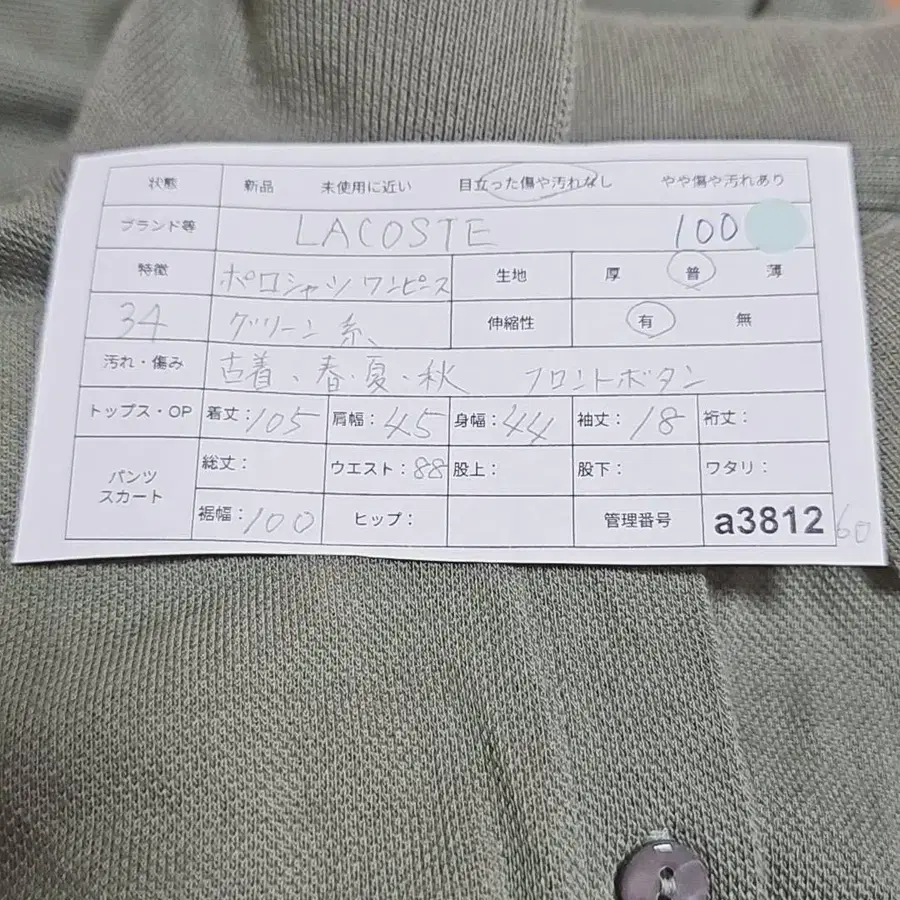 状態 新品 未使用に近い 目立った傷や汚れなし やや傷や汚れあり
ブランド等 LACOSTE 100
特徴 ポロシャツワンピース 生地 厚 普 薄
34 グリーン系 伸縮性 有 無
汚れ・傷み 古着、春・夏・秋 フロントボタン
トップス・OP 着丈:105 肩幅:45 身幅:44 袖丈:18 裄丈:
パンツ スカート 総丈: ウエスト:88 股上: 股下: ワタリ:
裾幅:100 ヒップ: 管理番号 a3812 60